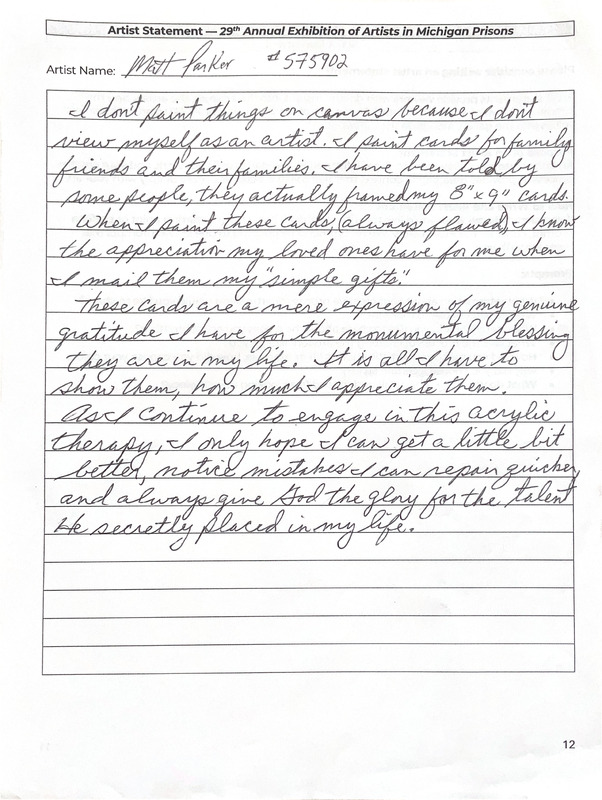 Artist Statement — 29th Annual Exhibition of Artists in Michigan Prisons
Artist Name: Matt Parker #575902
I don't paint things on canvas because I don't
view myself as an artist. I paint cards for family
friends and their families. I have been told by
some people, they actually framed my 8" x 9" cards.
When I paint these cards, (always flawed) I know
the appreciation my loved ones have for me when
I mail them my "simple gifts".
These cards are a mere expression of my genuine
gratitude I have for the monumental blessing
they are in my life. It is all I have to
show them, how much I appreciate them.
As I continue to engage in this acrylic
therapy, I only hope I can get a little bit
better, notice mistakes I can repair quicker,
and always give God the glory for the talent
He secretly placed in my life.
12